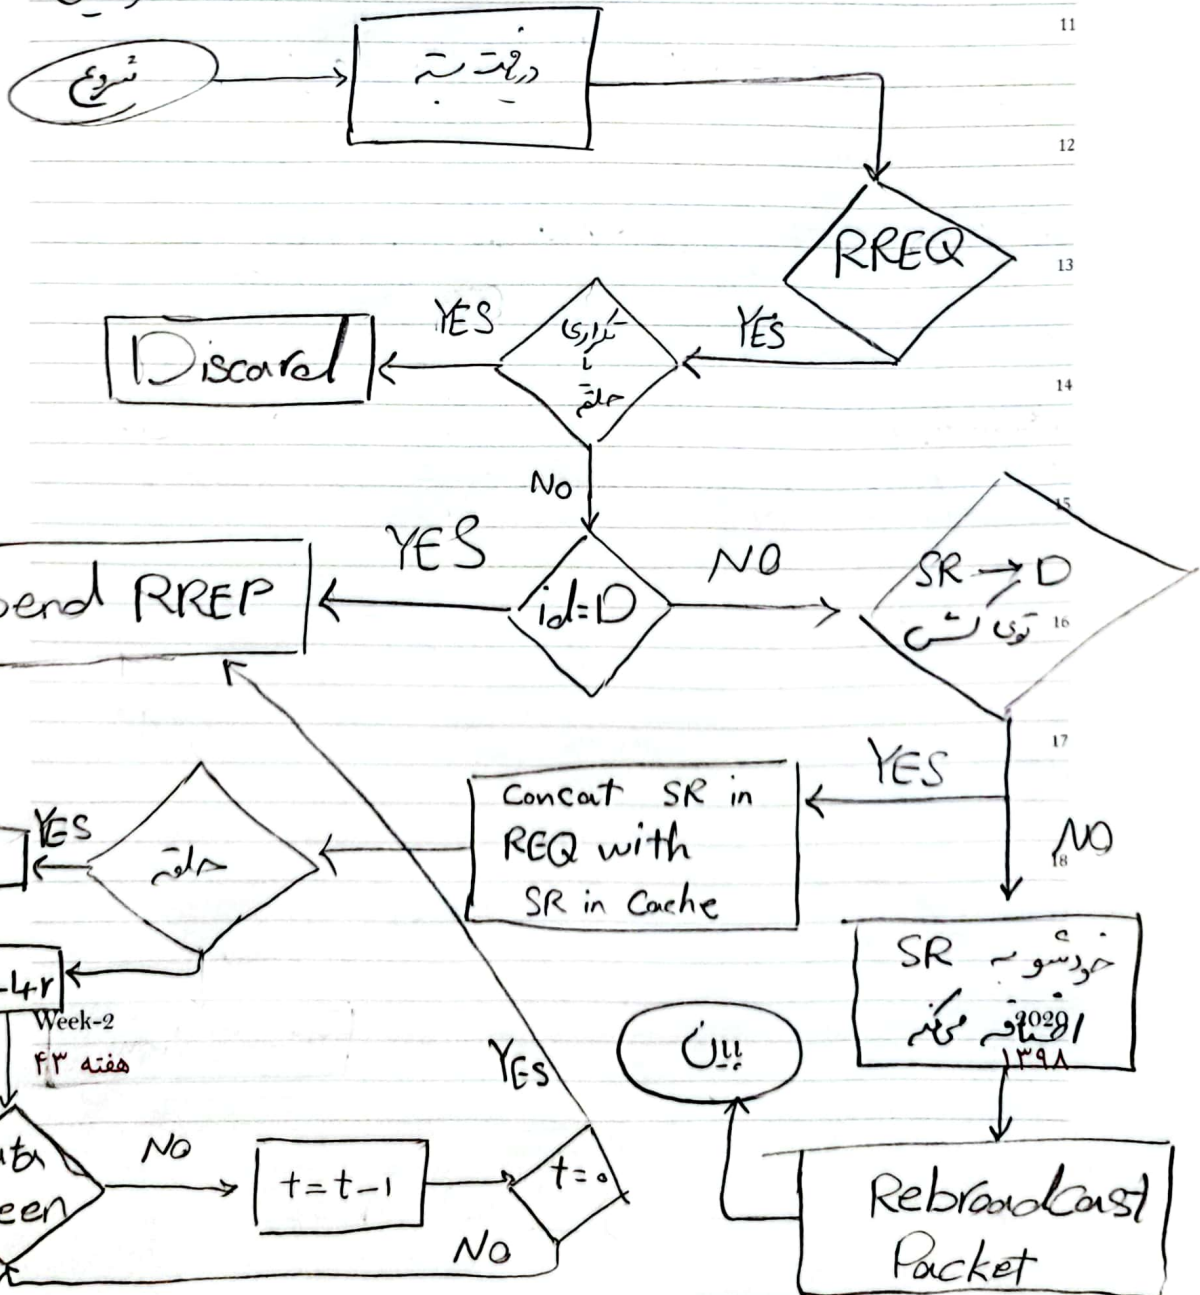 11
شروع
دریافت بسته
12
RREQ
13
YES
YES
تکراری
یا
حلقه
Discard
14
NO
15
YES
NO
SR → D
توی کش
16
id=D
send RREP
17
YES
Concat SR in
REQ with
SR in Cache
NO
18
YES
حلقه
SR خودشو به
اضافه می‌کنه
2020
۱۳۹۸
Week-2
هفته ۴۳
پایان
YES
NO
t=t-1
t=0
NO
Rebroadcast
Packet